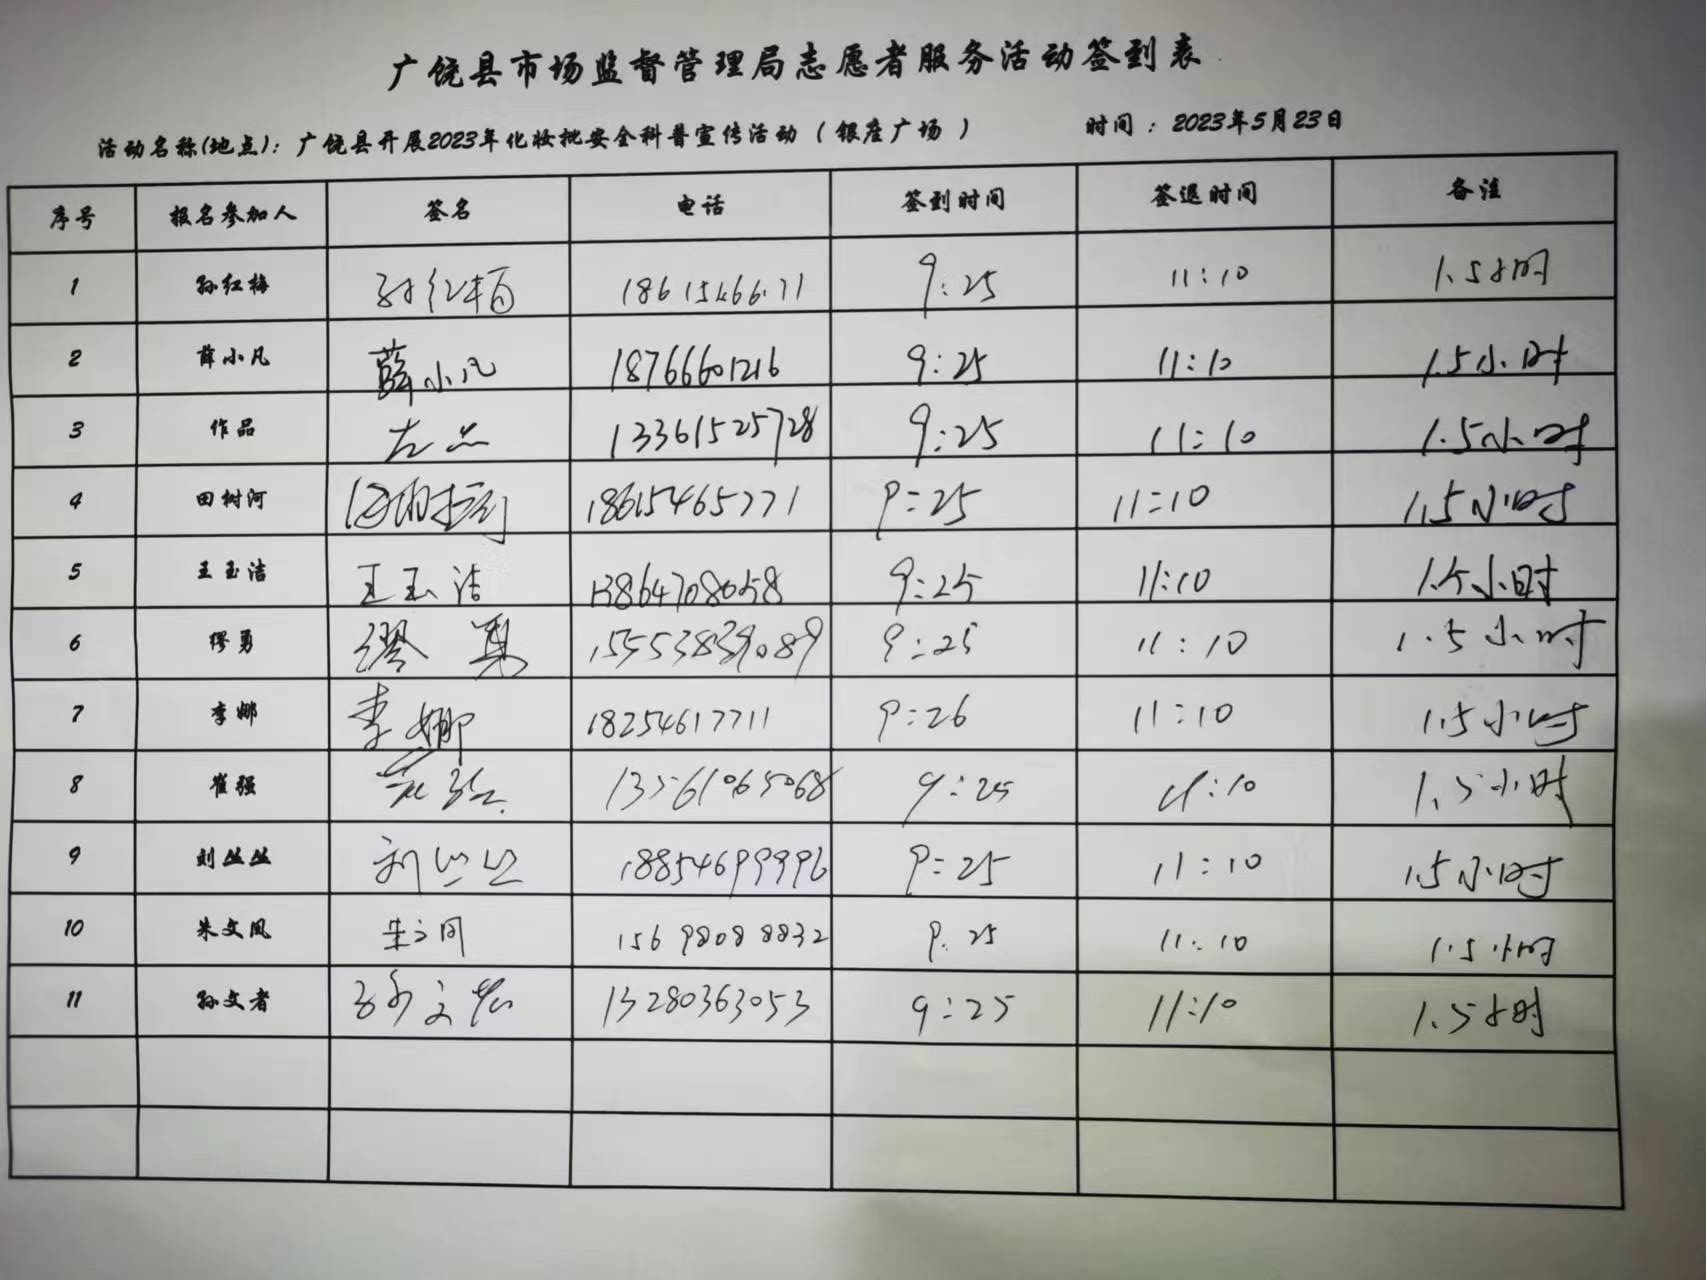 广饶县市场监督管理局志愿者服务活动签到表
活动名称(地点)：广饶县开展2023年化妆批安全科普宣传活动（银座广场） 时间：2023年5月23日
序号 报名参加人 签名 电话 签到时间 签退时间 备注
1 孙红梅 孙红梅 9:25 11:10 1.5小时
2 薛小凡 薛小凡 18766601216 9:25 11:10 1.5小时
3 作品 左品 13361525728 9:25 11:10 1.5小时
4 田树河 18615465771 9:25 11:10 1.5小时
5 王玉洁 王玉洁 13864708058 9:25 11:10 1.5小时
6 缪勇 缪勇 15553839089 9:25 11:10 1.5小时
7 李娜 李娜 18254617711 9:26 11:10 1.5小时
8 崔强 崔强 13561065068 9:25 11:10 1.5小时
9 刘丝丝 刘丝丝 18854699996 9:25 11:10 1.5小时
10 朱文凤 15698088832 9:25 11:10 1.5小时
11 孙文者 13280363053 9:25 11:10 1.5小时